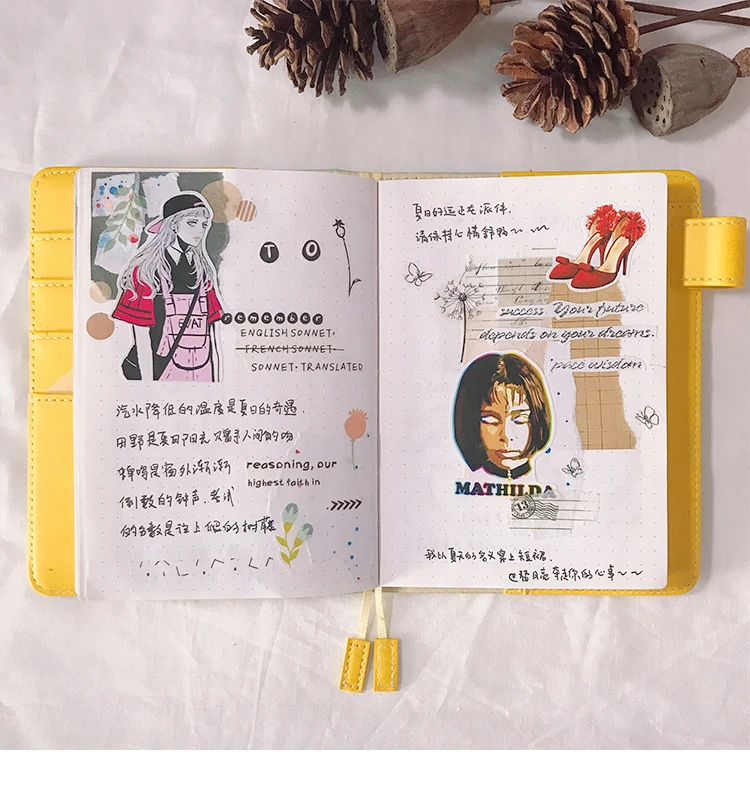 TO
remember
ENGLISH SONNET·
FRENCH SONNET·
SONNET·TRANSLATED
BOAT
汽水降低的温度是夏日的奇遇
田野是夏日阳光又亲人间的吻
蝉鸣是窗外渐渐
倒数的钟声 考试
的分数是往上爬的树藤
reasoning, our
highest faith in
夏日的运正在派件.
请保持心情舒畅~
success & your future
depends on your dreams.
pace wisdom
MATHILDA
13
我以夏天的名义穿上短裙.